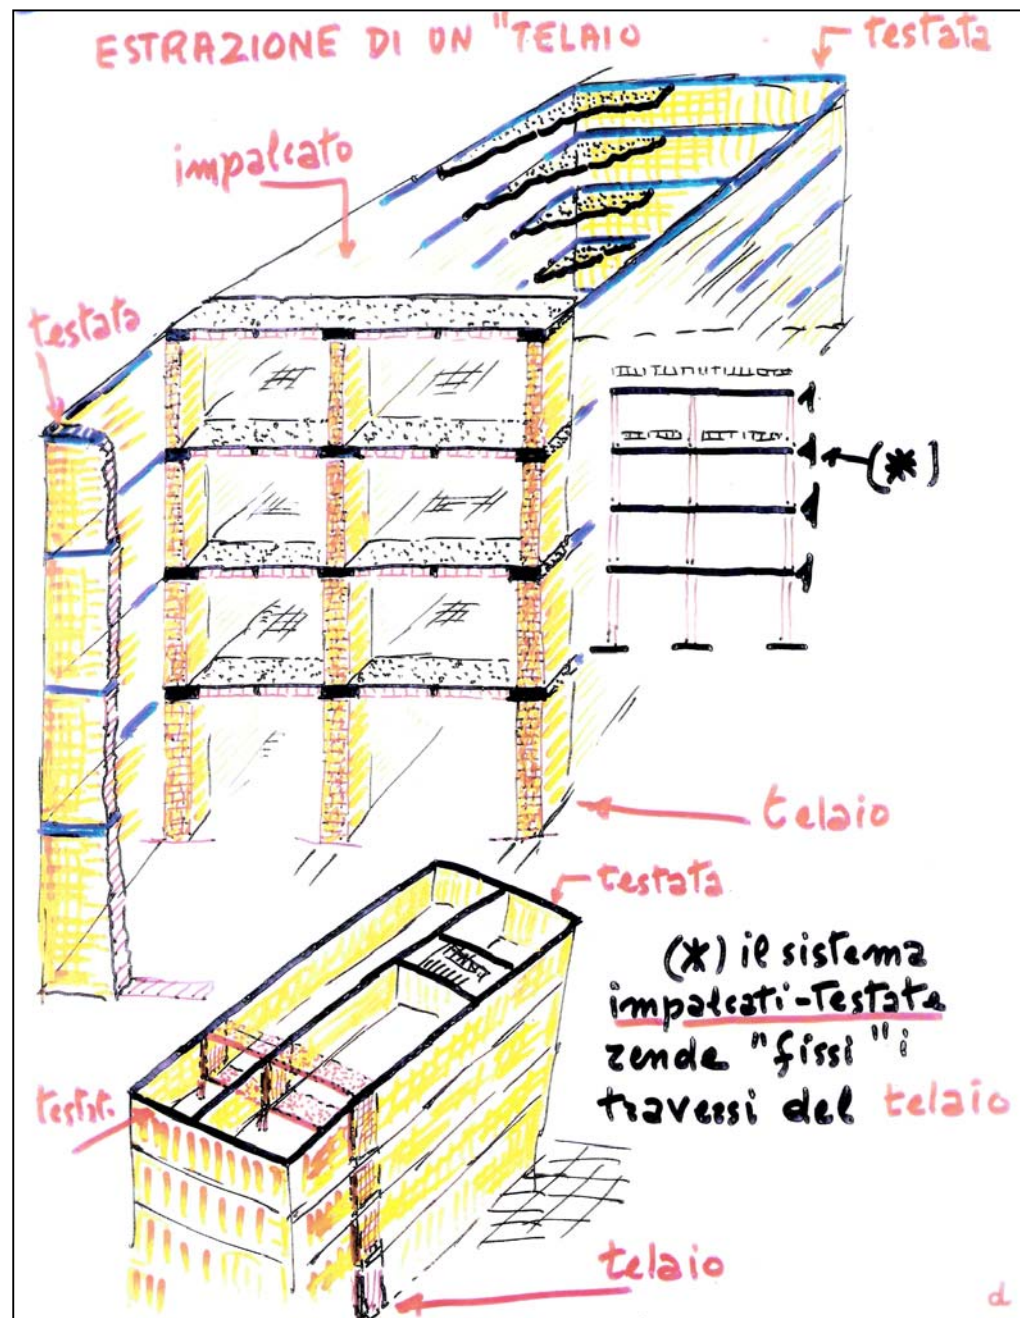 ESTRAZIONE DI UN "TELAIO
testata
impalcato
testata
(*)
telaio
testata
(*) il sistema
impalcati-Testate
rende "fissi" i
traversi del telaio
testat.
telaio
d